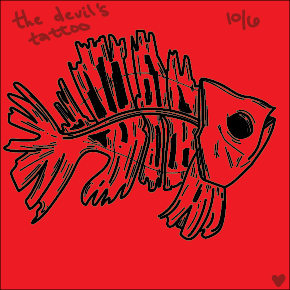 the devil's
tattoo
10/6